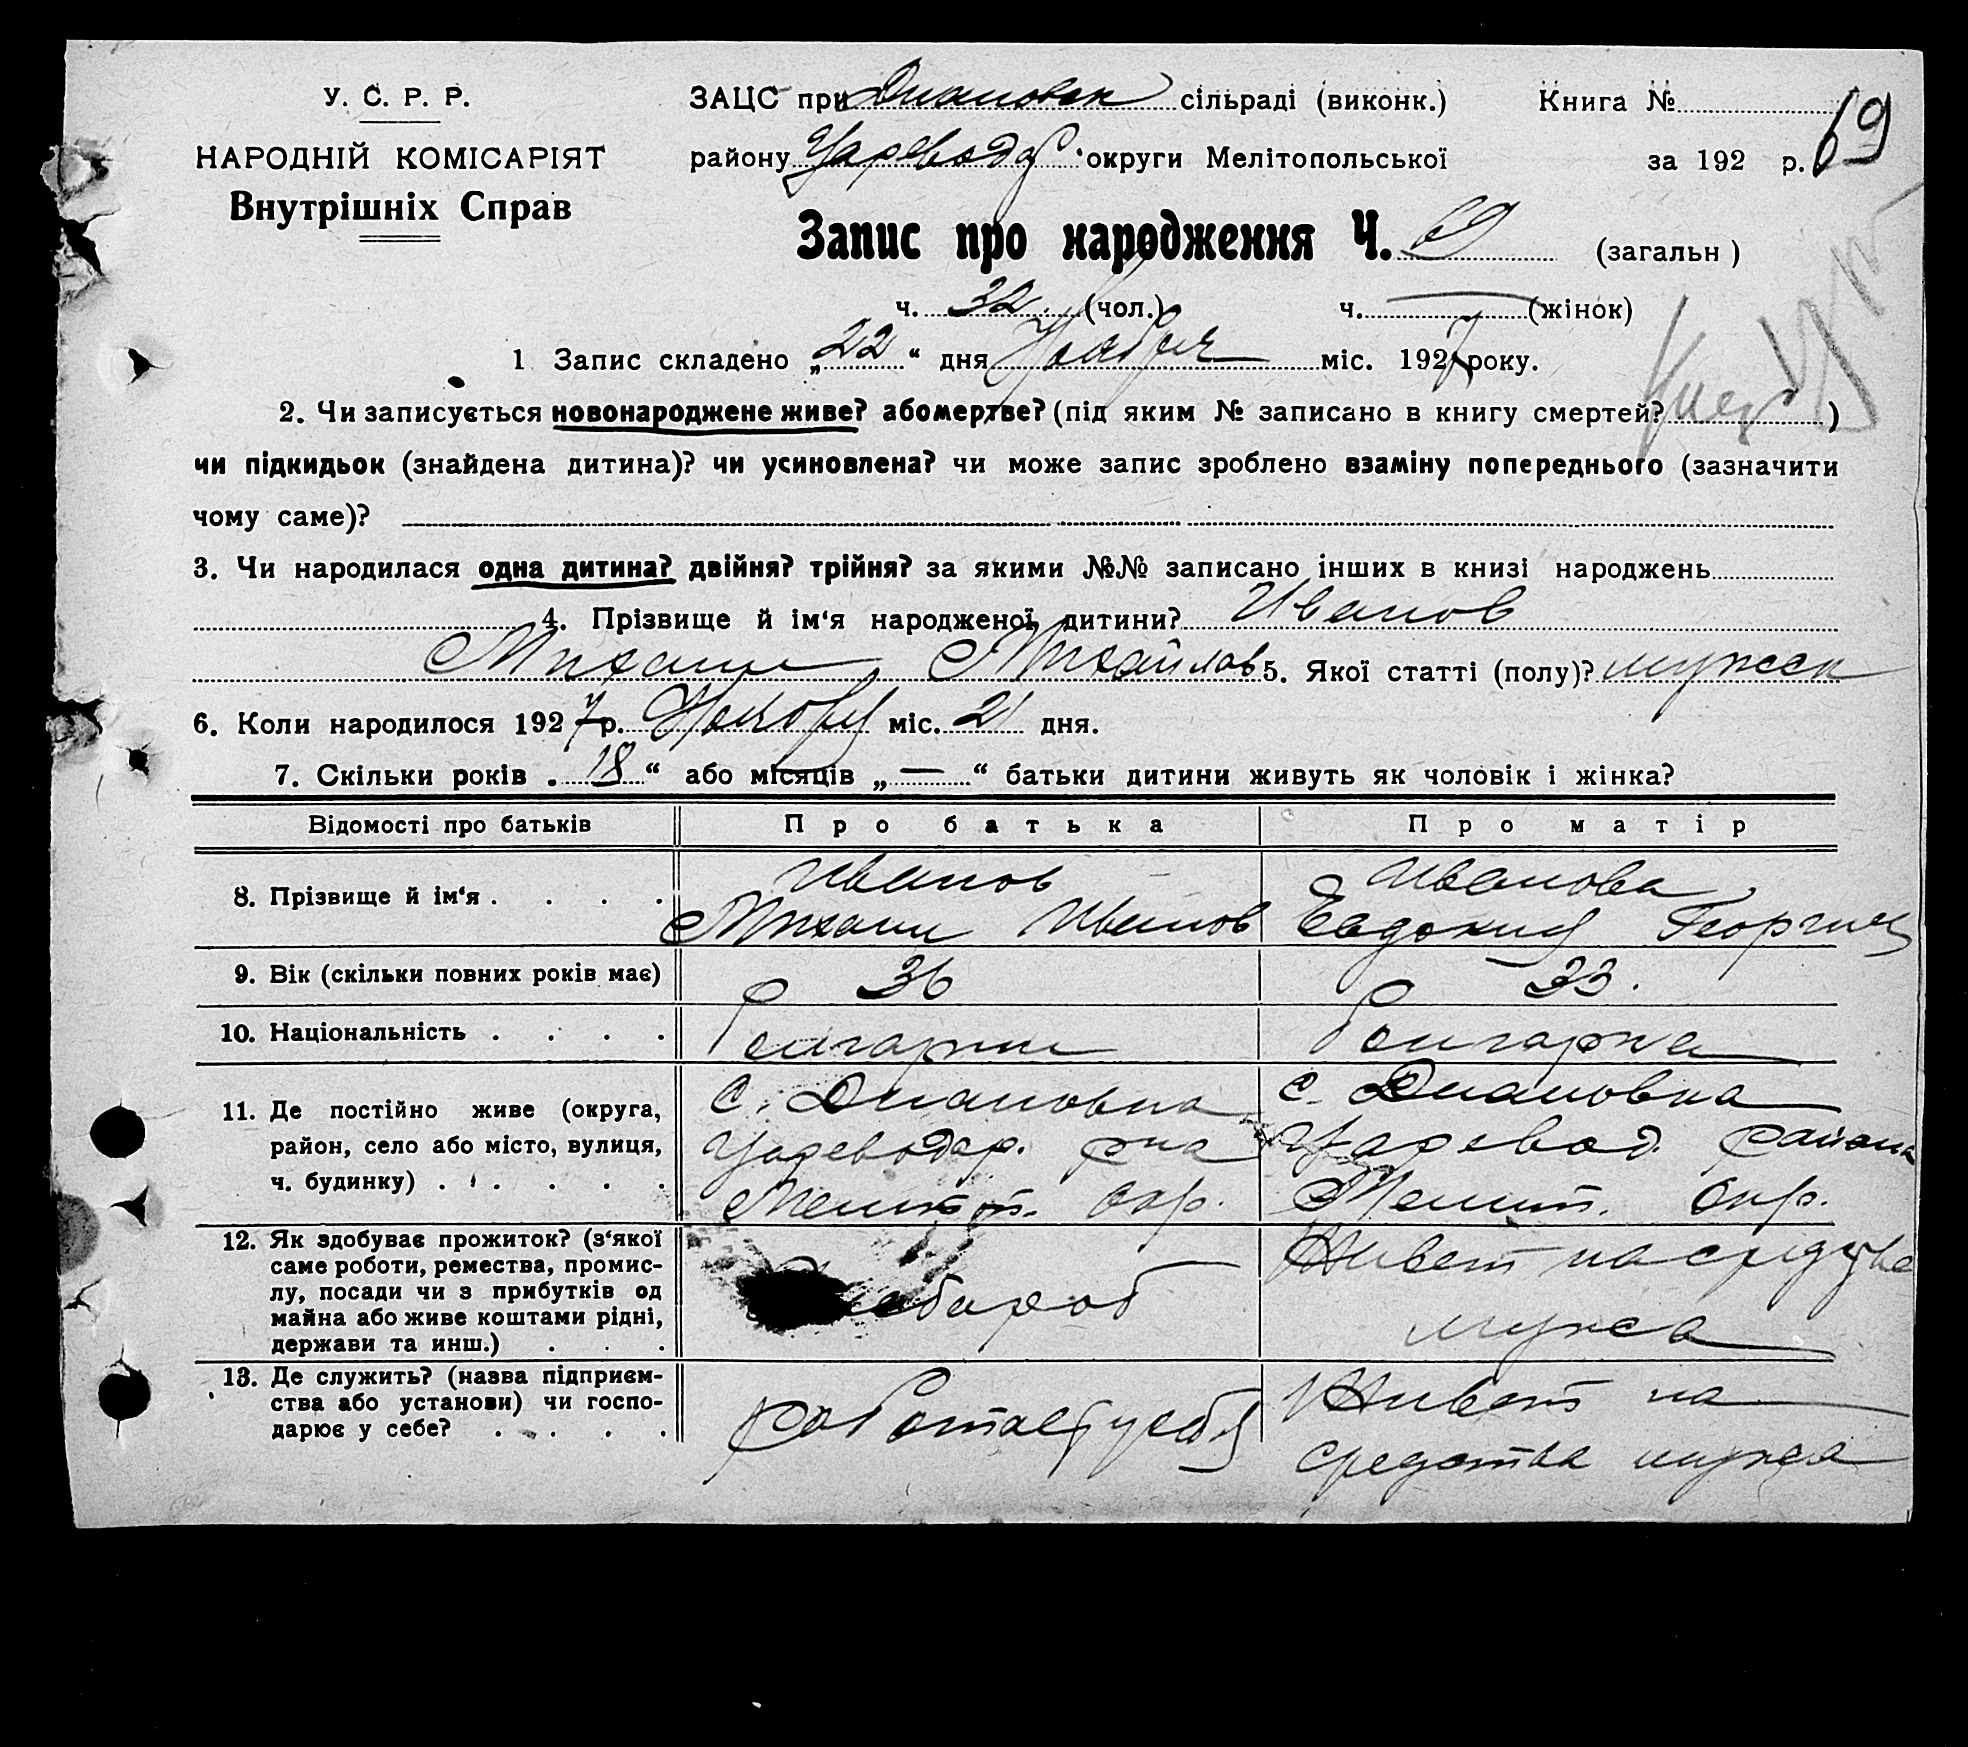 У. С. Р. Р.
НАРОДНІЙ КОМІСАРІЯТ
Внутрішніх Справ
ЗАЦС при Диановск сільраді (виконк.) Книга №
району Царевод округи Мелітопольської за 192 р. 69
Запис про народження Ч. 69 (загальн)
ч. 32 (чол.) ч. — (жінок)
1 Запис складено „22“ дня Ноября міс. 1927 року.
2. Чи записується новонароджене живе? або мертве? (під яким № записано в книгу смертей? )
чи підкидьок (знайдена дитина)? чи усиновлена? чи може запис зроблено взаміну попереднього (зазначити
чому саме)?
3. Чи народилася одна дитина? двійня? трійня? за якими №№ записано інших в книзі народжень
4. Прізвище й ім‘я народженої дитини? Иванов
Михаил Михайлов 5. Якої статті (полу)? мужск
6. Коли народилося 1927 р. Ноября міс. 21 дня.
7. Скільки років „18“ або місяців „—“ батьки дитини живуть як чоловік і жінка?
Відомості про батьків Про батька Про матір
8. Прізвище й ім‘я . . . . Иванов Михаил Иванов Иванова Евдокия Георгиев
9. Вік (скільки повних років має) 36 33.
10. Національність . . . . Болгарин Болгарка
11. Де постійно живе (округа,
район, село або місто, вулиця,
ч. будинку) . . . . .
с. Диановка
Цареводар. рна
Мелит. Окр.
с. Диановка
Царевод. района
Мелит. Окр.
12. Як здобуває прожиток? (з‘якої
саме роботи, ремества, промис-
лу, посади чи з прибутків од
майна або живе коштами рідні,
держави та инш.) . . .
Хлебороб
Живет на средства
мужа
13. Де служить? (назва підприєм-
ства або установи) чи госпо-
дарює у себе? . . . .
работает у себя
Живет на
средства мужа